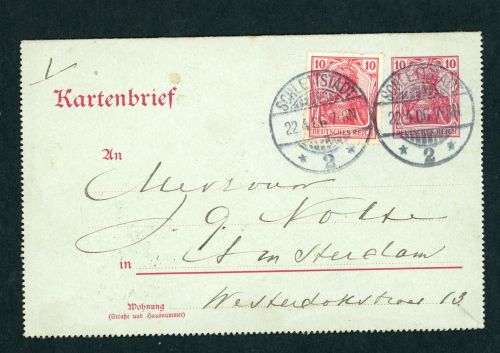 10 10 10 10
Kartenbrief
SCHLETTSTADT
22.4.06.7
DEUTSCHES REICH
* 2 *
SCHLETTSTADT
22.4.06.7
DEUTSCHES REICH
* 2 *
An
J. G. Nolte
in Amsterdam
Wohnung
(Straße und Hausnummer)
Westerdokstraat 13